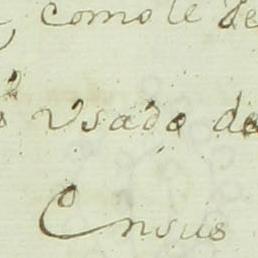 como le de
Usado de
Ensus